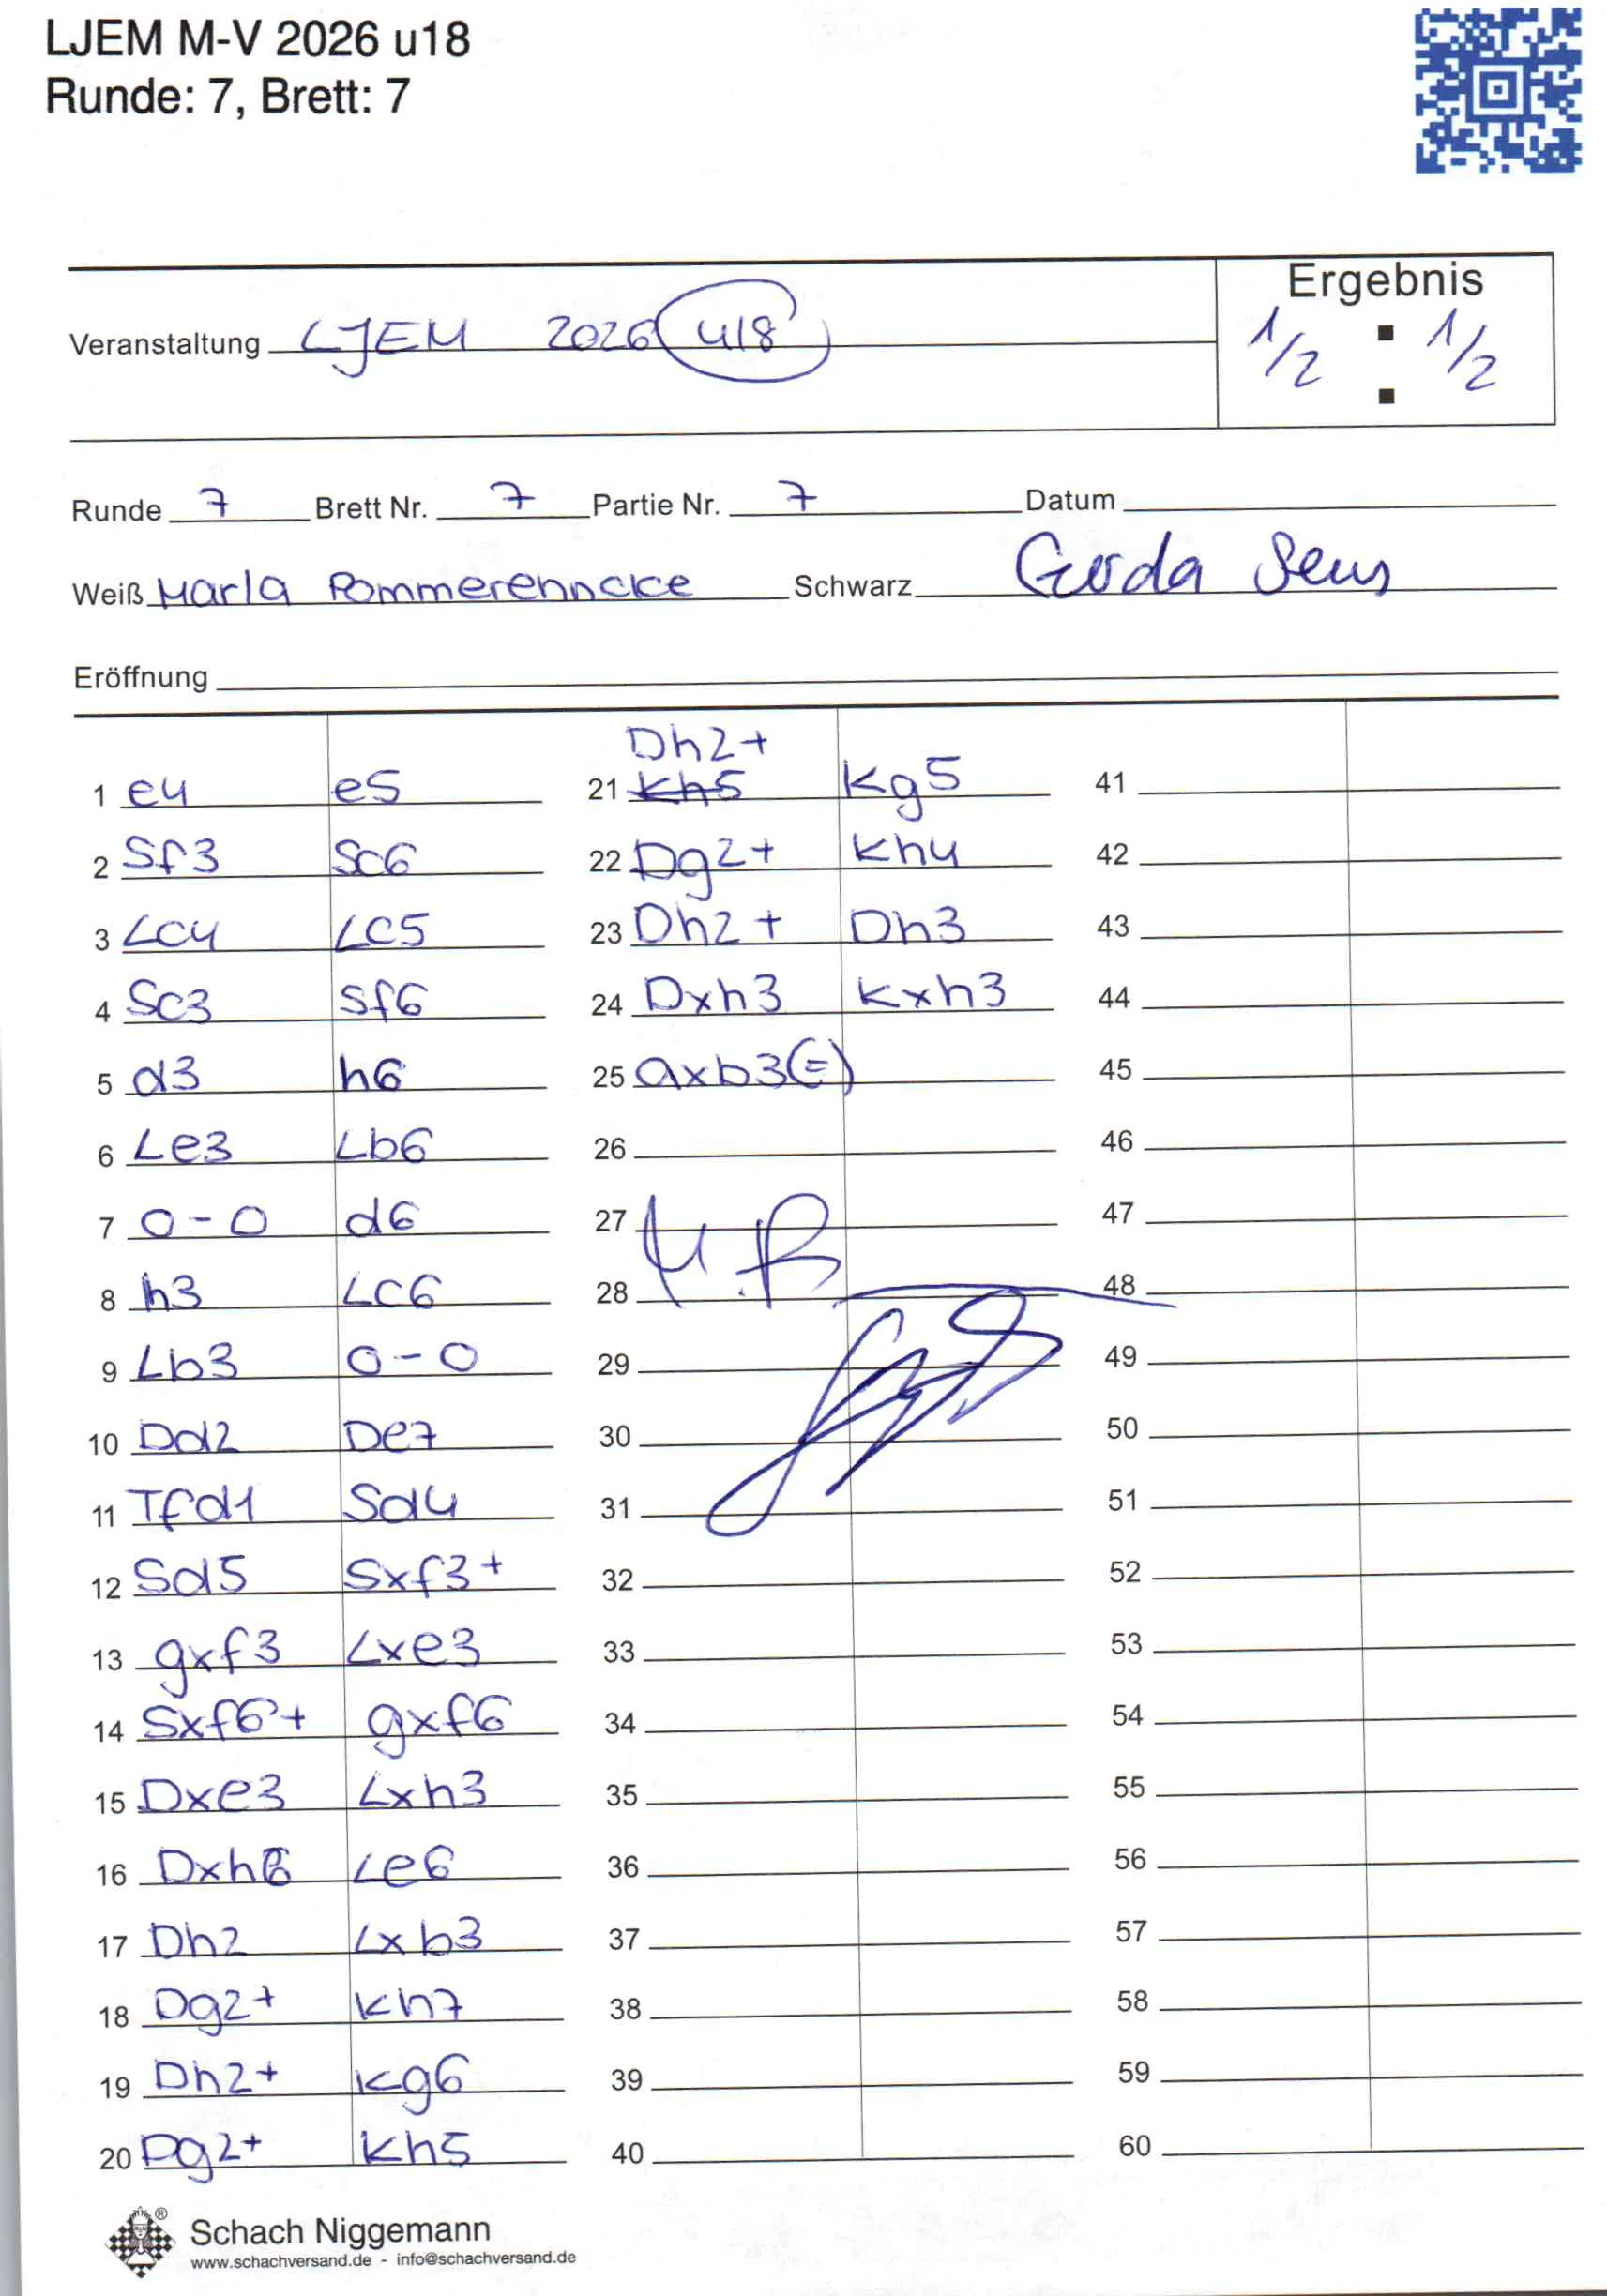 LJEM M-V 2026 u18
Runde: 7, Brett: 7
Ergebnis
Veranstaltung LJEM 2026 u18
1/2 : 1/2
Runde 7 Brett Nr. 7 Partie Nr. 7 Datum
Weiß Marla Pommerenncke Schwarz Gerda Sens
Eröffnung
1 e4 e5
2 Sf3 Sc6
3 Lc4 Lc5
4 Sc3 Sf6
5 d3 h6
6 Le3 Lb6
7 0-0 d6
8 h3 Lc6
9 Lb3 0-0
10 Dd2 De7
11 Tfd1 Sd4
12 Sd5 Sxf3+
13 gxf3 Lxe3
14 Sxf6+ gxf6
15 Dxe3 Lxh3
16 Dxh6 Le6
17 Dh2 Lxb3
18 Dg2+ Kh7
19 Dh2+ Kg6
20 Dg2+ Kh5
Dh2+
21 Kh5 Kg5
22 Dg2+ Kh4
23 Dh2+ Dh3
24 Dxh3 Kxh3
25 axb3(=)
26
27 M.P.
28
29
30
31
32
33
34
35
36
37
38
39
40
41
42
43
44
45
46
47
48
49
50
51
52
53
54
55
56
57
58
59
60
Schach Niggemann
www.schachversand.de - info@schachversand.de